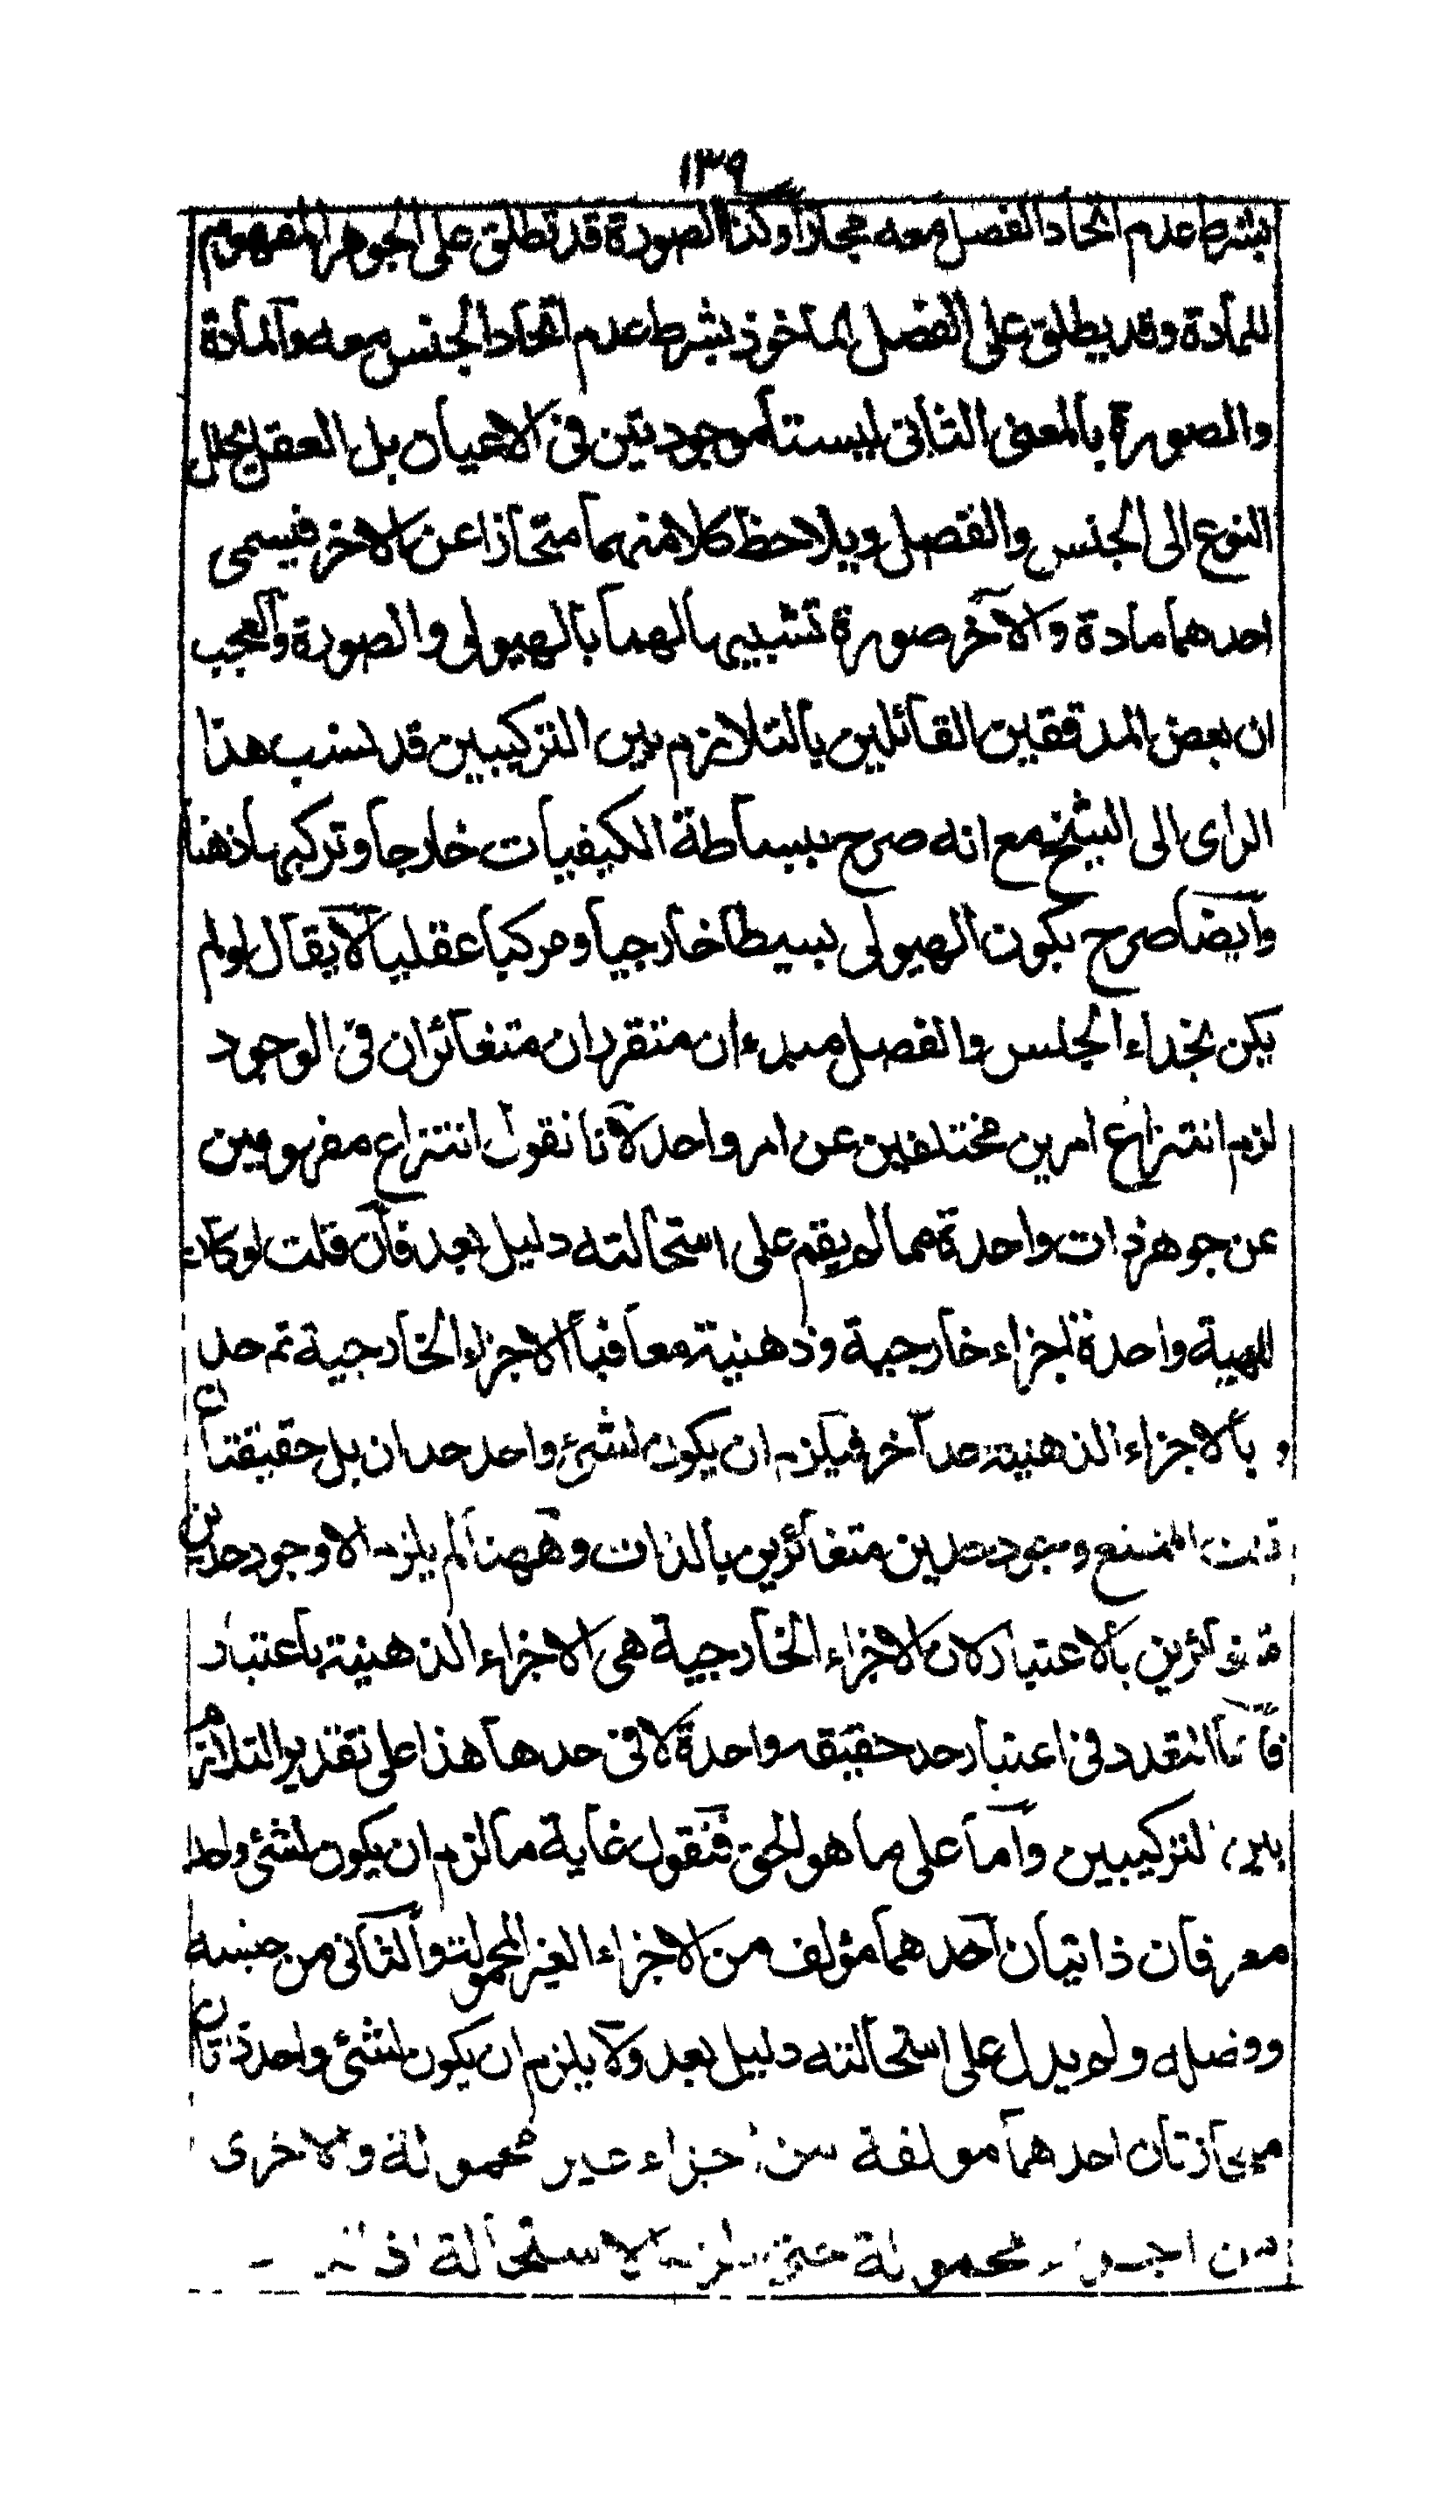 ١٣٩
بشرط عدم اتحاد الفصل معه مجازا وكذا الصورة قد تطلق على الجوهر المفهوم
للمادة وقد يطلق على الفصل الماخوذ بشرط عدم اتحاد الجنس معه والمادة
والصورة بالمعنى الثانى ليستا موجودتين فى الاعيان بل العقل يحلل
النوع الى الجنس والفصل ويلاحظ كلا منهما منحازا عن الاخر فيسمى
احدهما مادة والآخر صورة تشبيها لهما بالهيولى والصورة والعجب
ان بعض المدققين القائلين بالتلازم بين التركيبين قد نسب هذا
الراى الى الشيخ مع انه صرح ببساطة الكيفيات خارجا وتركبها ذهنا
وايضا صرح بكون الهيولى بسيطا خارجيا ومركبا عقليا لايقال لو لم
يكن بحذاء الجنس والفصل مبدءان متقرران متغائران فى الوجود
لزم انتزاع امرين مختلفين عن امر واحد لآنا نقول انتزاع مفهومين
عن جوهر ذات واحدة مما لم يقم على استحالته دليل بعد فان قلت لو كان
لمهية واحدة اجزاء خارجية وذهنية معا فبالاجزاء الخارجية تم حد
و بالاجزاء الذهنية حد آخر فيلزم ان يكون لشئ واحد حدان بل حقيقتان
قلت الممتنع وجود حدين متغائرين بالذات وههنا لم يلزم الا وجود حدين
متغائرين بالاعتبار لان الاجزاء الخارجية هى الاجزاء الذهنية باعتبار
فانما التعدد فى اعتبار حد حقيقه واحدة لا فى حدها هذا على تقدير التلازم
بين التركيبين واما على ما هو الحق فنقول غاية ما لزم ان يكون لشئ واحد
معرفان ذاتيان احدهما مؤلف من الاجزاء الغير المحمولة والثانى من جنسه
وفصله ولم يدل على استحالته دليل بعد ولا يلزم ان يكون لشئ واحد ذاتان
احدهما مولفة من اجزاء غير محمولة والاخرى
من اجزاء محمولة حتى يلزم الاستحالة